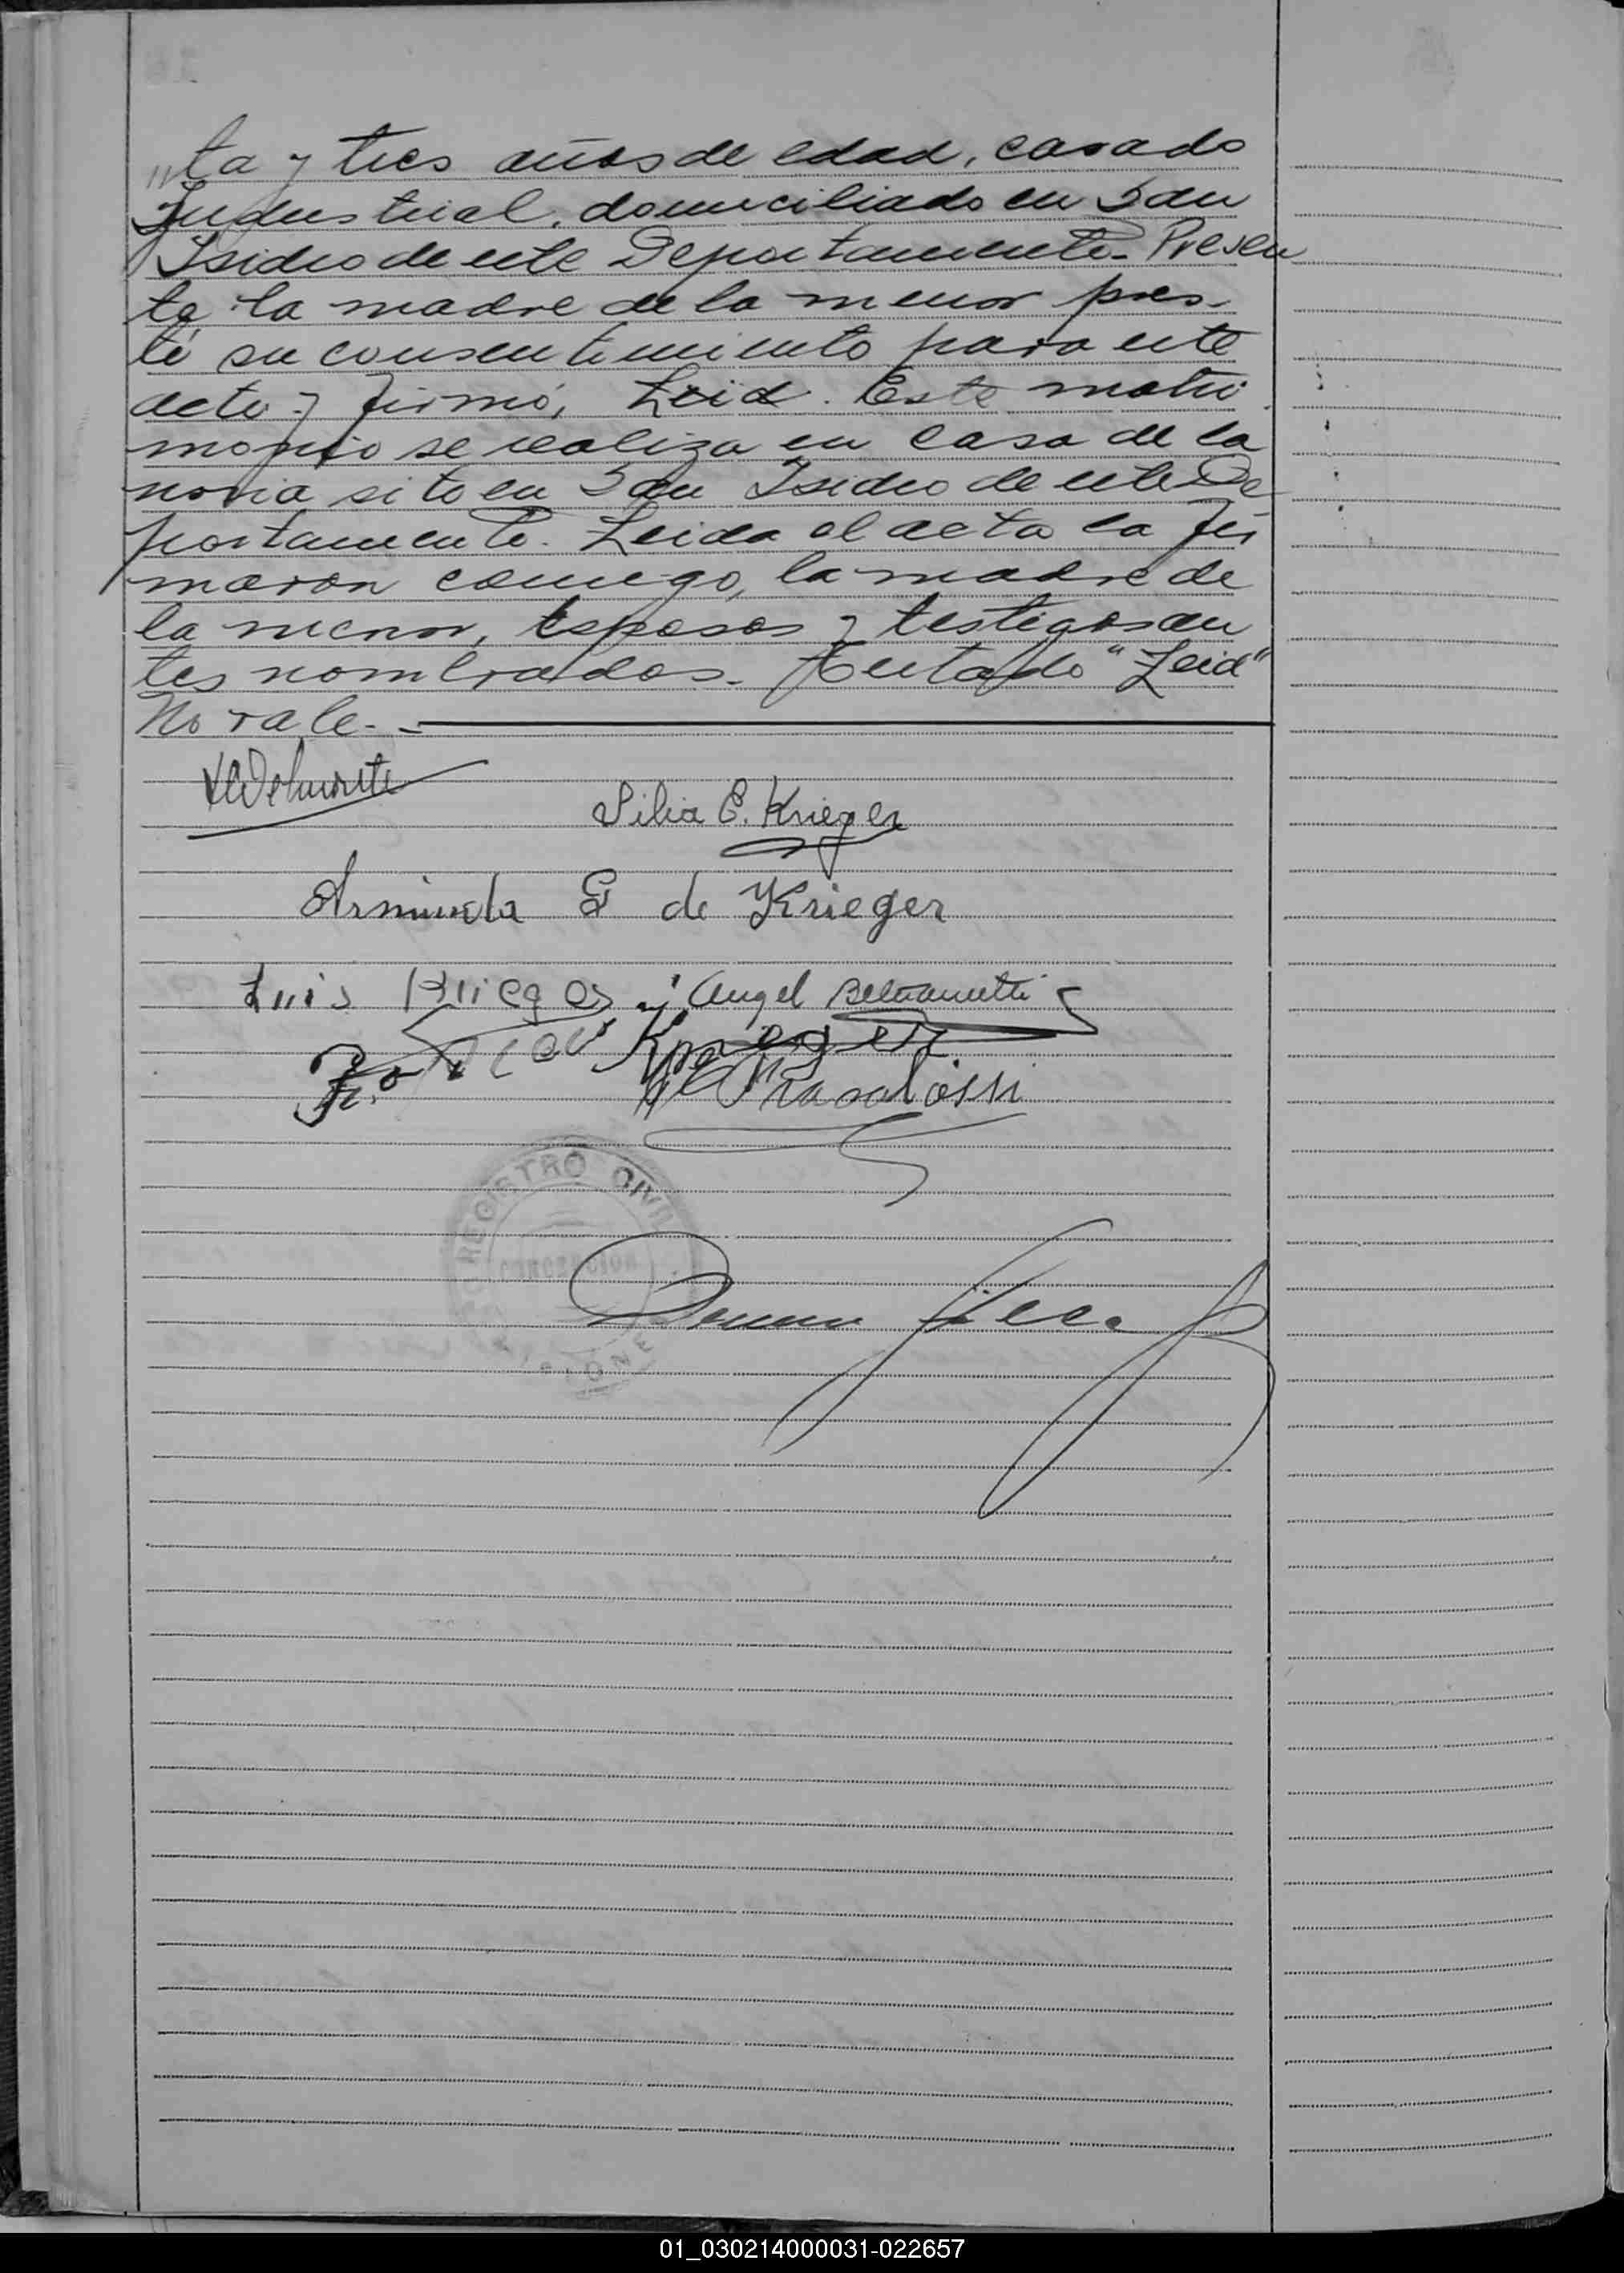 "ta y tres años de edad, casado
Industrial, domiciliado en San
Isidro de este Departamento. Presen
te la madre de la menor pres-
tó su consentimiento para este
acto y firmó, Leid. Este matri
monio se realiza en casa de la
novia sito en San Isidro de este De
partamento. Leida el acta la fir
maron conmigo, la madre de
la menor, esposos y testigos an
tes nombrados. Testado "Leid"
No vale.-
Silia E. Krieger
Arminda G de Krieger
Luis Krieger y Angel
Krieger
REGISTRO CIVIL
01_030214000031-022657